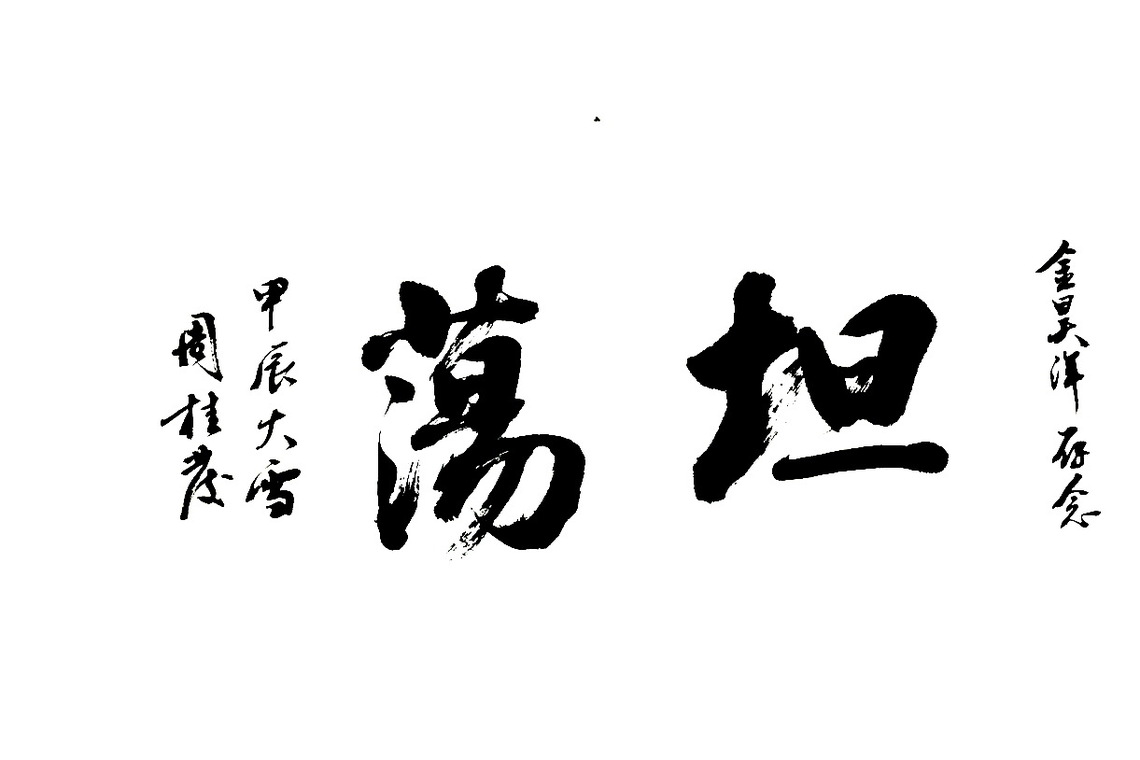 金昊天洋 存念
坦蕩
甲辰大雪
周桂发